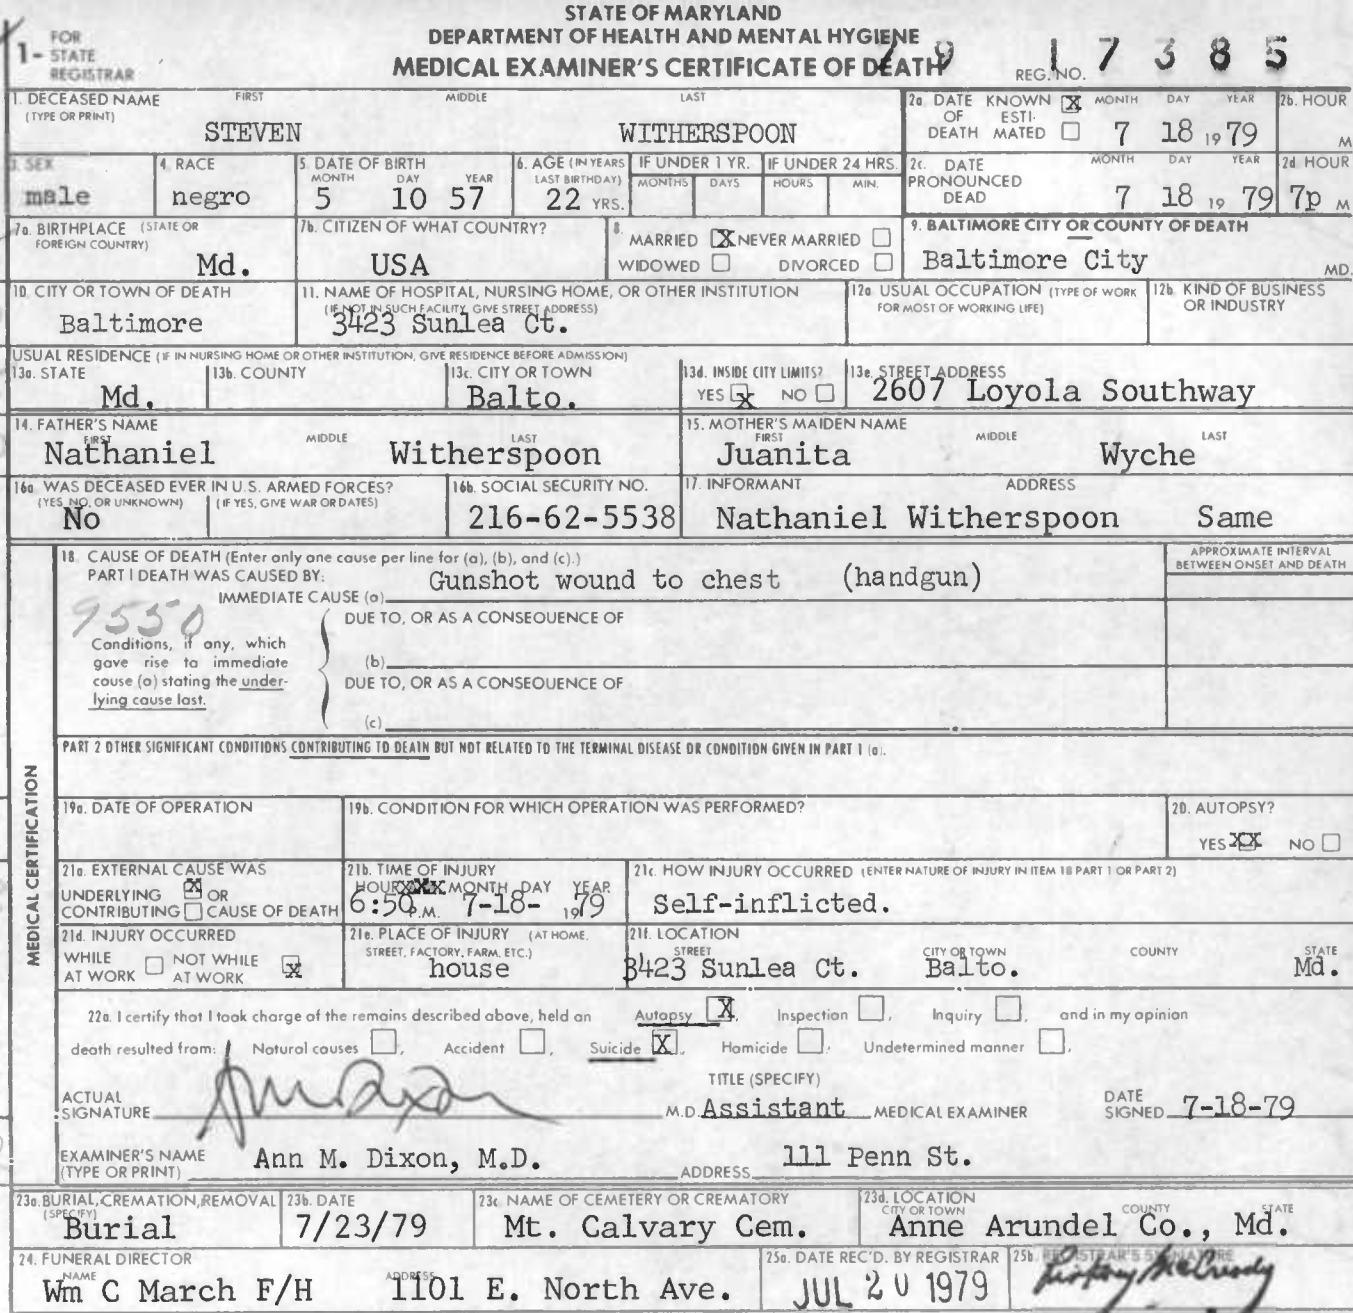 STATE OF MARYLAND
DEPARTMENT OF HEALTH AND MENTAL HYGIENE
MEDICAL EXAMINER'S CERTIFICATE OF DEATH
1- FOR STATE REGISTRAR
REG. NO. 79 17385
1. DECEASED NAME (TYPE OR PRINT) FIRST MIDDLE LAST
STEVEN WITHERSPOON
2a. DATE OF DEATH KNOWN X ESTIMATED MONTH DAY YEAR
7 18 1979
2b. HOUR M
3. SEX
male
4. RACE
negro
5. DATE OF BIRTH MONTH DAY YEAR
5 10 57
6. AGE (IN YEARS LAST BIRTHDAY)
22 YRS.
IF UNDER 1 YR. MONTHS DAYS
IF UNDER 24 HRS. HOURS MIN.
2c. DATE PRONOUNCED DEAD MONTH DAY YEAR
7 18 1979
2d HOUR
7p M
7a. BIRTHPLACE (STATE OR FOREIGN COUNTRY)
Md.
7b. CITIZEN OF WHAT COUNTRY?
USA
8. MARRIED X NEVER MARRIED
WIDOWED DIVORCED
9. BALTIMORE CITY OR COUNTY OF DEATH
Baltimore City MD.
10. CITY OR TOWN OF DEATH
Baltimore
11. NAME OF HOSPITAL, NURSING HOME, OR OTHER INSTITUTION
(IF NOT IN SUCH FACILITY, GIVE STREET ADDRESS)
3423 Sunlea Ct.
12a. USUAL OCCUPATION (TYPE OF WORK FOR MOST OF WORKING LIFE)
12b. KIND OF BUSINESS OR INDUSTRY
USUAL RESIDENCE (IF IN NURSING HOME OR OTHER INSTITUTION, GIVE RESIDENCE BEFORE ADMISSION)
13a. STATE
Md.
13b. COUNTY
13c. CITY OR TOWN
Balto.
13d. INSIDE CITY LIMITS?
YES X NO
13e. STREET ADDRESS
2607 Loyola Southway
14. FATHER'S NAME FIRST MIDDLE LAST
Nathaniel Witherspoon
15. MOTHER'S MAIDEN NAME FIRST MIDDLE LAST
Juanita Wyche
16a. WAS DECEASED EVER IN U.S. ARMED FORCES?
(YES, NO, OR UNKNOWN) (IF YES, GIVE WAR OR DATES)
No
16b. SOCIAL SECURITY NO.
216-62-5538
17. INFORMANT ADDRESS
Nathaniel Witherspoon Same
MEDICAL CERTIFICATION
18. CAUSE OF DEATH (Enter only one cause per line for (a), (b), and (c).)
PART I DEATH WAS CAUSED BY:
IMMEDIATE CAUSE (a) Gunshot wound to chest (handgun)
APPROXIMATE INTERVAL BETWEEN ONSET AND DEATH
9550
Conditions, if any, which gave rise to immediate cause (a) stating the underlying cause last.
DUE TO, OR AS A CONSEQUENCE OF
(b)
DUE TO, OR AS A CONSEQUENCE OF
(c)
PART 2 OTHER SIGNIFICANT CONDITIONS CONTRIBUTING TO DEATH BUT NOT RELATED TO THE TERMINAL DISEASE OR CONDITION GIVEN IN PART 1 (a).
19a. DATE OF OPERATION
19b. CONDITION FOR WHICH OPERATION WAS PERFORMED?
20. AUTOPSY?
YES XX NO
21a. EXTERNAL CAUSE WAS
UNDERLYING X OR
CONTRIBUTING CAUSE OF DEATH
21b. TIME OF INJURY
HOUR XXX MONTH DAY YEAR
6:50 P.M. 7-18- 1979
21c. HOW INJURY OCCURRED (ENTER NATURE OF INJURY IN ITEM 18 PART 1 OR PART 2)
Self-inflicted.
21d. INJURY OCCURRED
WHILE AT WORK NOT WHILE AT WORK X
21e. PLACE OF INJURY (AT HOME, STREET, FACTORY, FARM, ETC.)
house
21f. LOCATION
STREET CITY OR TOWN COUNTY STATE
3423 Sunlea Ct. Balto. Md.
22a. I certify that I took charge of the remains described above, held an Autopsy X, Inspection, Inquiry, and in my opinion
death resulted from: Natural causes, Accident, Suicide X, Homicide, Undetermined manner.
ACTUAL SIGNATURE
TITLE (SPECIFY)
M.D. Assistant MEDICAL EXAMINER
DATE SIGNED 7-18-79
EXAMINER'S NAME (TYPE OR PRINT) Ann M. Dixon, M.D.
ADDRESS 111 Penn St.
23a. BURIAL, CREMATION, REMOVAL (SPECIFY)
Burial
23b. DATE
7/23/79
23c. NAME OF CEMETERY OR CREMATORY
Mt. Calvary Cem.
23d. LOCATION CITY OR TOWN COUNTY STATE
Anne Arundel Co., Md.
24. FUNERAL DIRECTOR
NAME ADDRESS
Wm C March F/H 1101 E. North Ave.
25a. DATE REC'D. BY REGISTRAR
JUL 20 1979
25b. REGISTRAR'S SIGNATURE